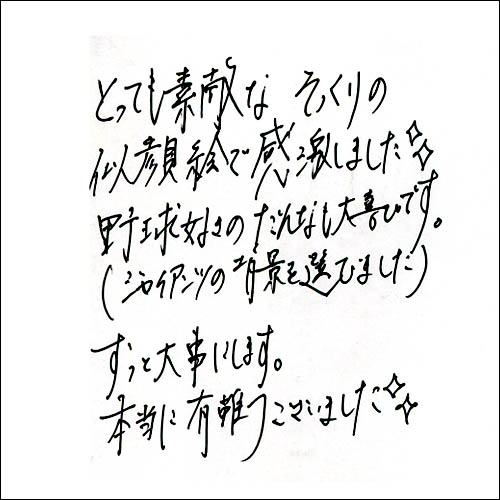 とっても素敵な そっくりの
似顔絵で感激しました✧✧
野球好きのだんなも大喜びです。
(ジャイアンツの背景を選びました)
ずっと大事にします。
本当に有難うございました✧✧